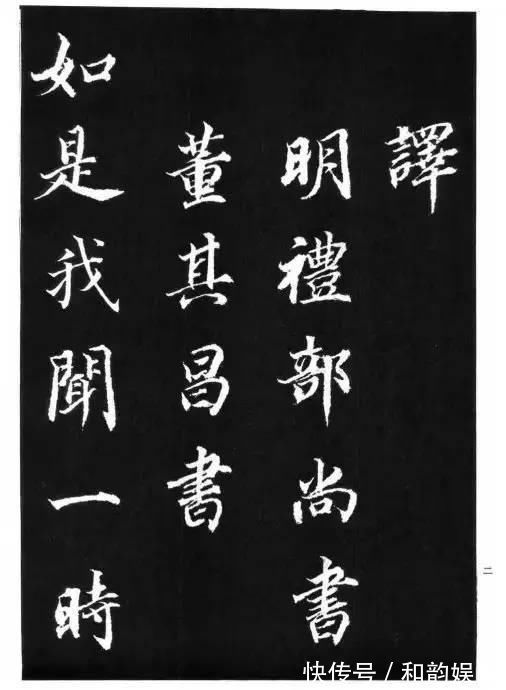 譯
明禮部尚書
董其昌書
如是我聞一時
二
快传号／和韵娱